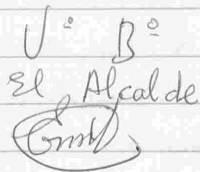 Vº Bº
El Alcalde